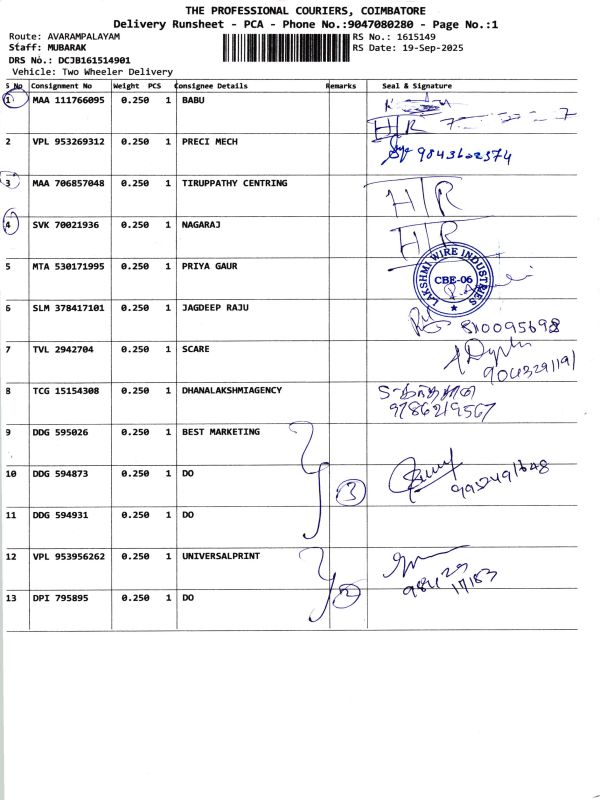 THE PROFESSIONAL COURIERS, COIMBATORE
Delivery Runsheet - PCA - Phone No.:9047080280 - Page No.:1
Route: AVARAMPALAYAM RS No.: 1615149
Staff: MUBARAK RS Date: 19-Sep-2025
DRS No.: DCJB161514901
Vehicle: Two Wheeler Delivery
S No Consignment No Weight PCS Consignee Details Remarks Seal & Signature
1 MAA 111766095 0.250 1 BABU
H/R
2 VPL 953269312 0.250 1 PRECI MECH
3 MAA 706857048 0.250 1 TIRUPPATHY CENTRING
H/R
4 SVK 70021936 0.250 1 NAGARAJ H/R
5 MTA 530171995 0.250 1 PRIYA GAUR LAKSHMI WIRE INDUSTRIES CBE-06
6 SLM 378417101 0.250 1 JAGDEEP RAJU
7 TVL 2942704 0.250 1 SCARE
9043291191
8 TCG 15154308 0.250 1 DHANALAKSHMIAGENCY
9786219567
9 DDG 595026 0.250 1 BEST MARKETING
10 DDG 594873 0.250 1 DO 3
11 DDG 594931 0.250 1 DO
12 VPL 953956262 0.250 1 UNIVERSALPRINT
13 DPI 795895 0.250 1 DO 2